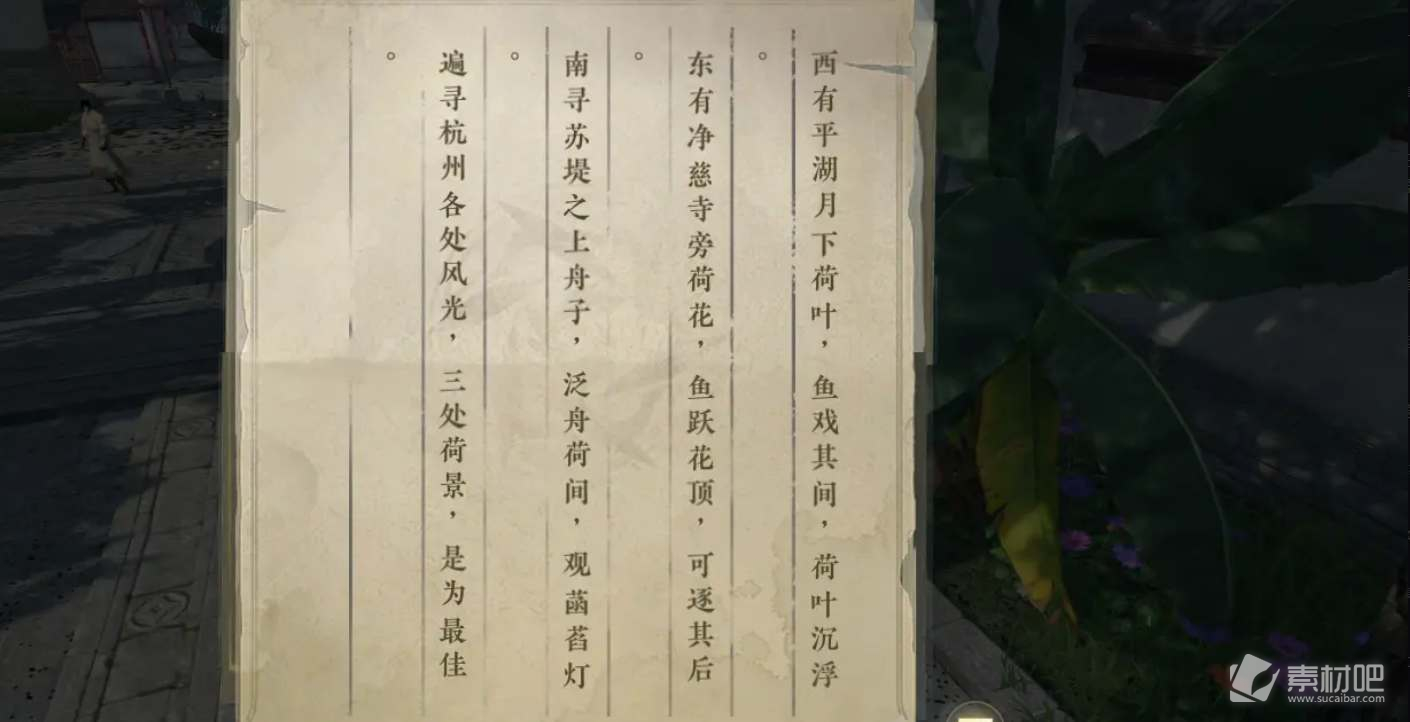 西有平湖月下荷叶，鱼戏其间，荷叶沉浮
。
东有净慈寺旁荷花，鱼跃花顶，可逐其后
。
南寻苏堤之上舟子，泛舟荷间，观菡萏灯
。
遍寻杭州各处风光，三处荷景，是为最佳
。
素材吧
www.sucaibar.com